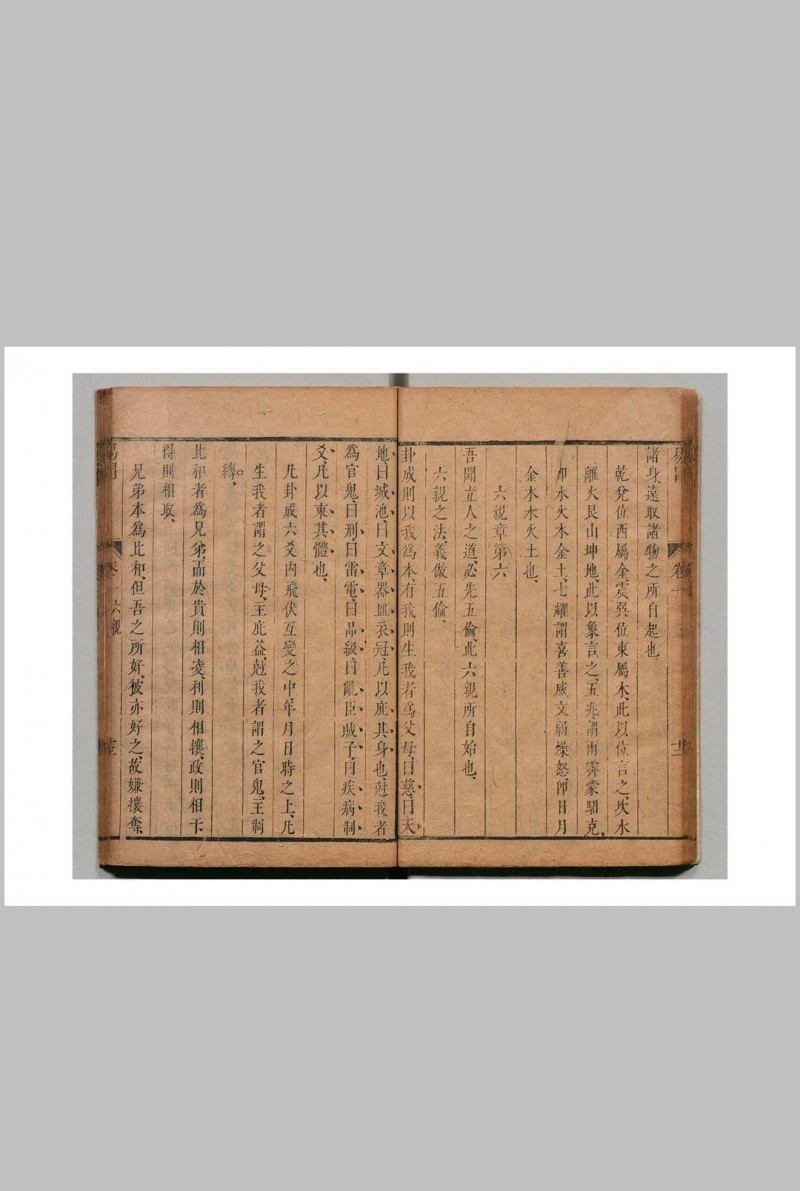 易冒
卷一
諸身遠取諸物之所自起也
乾兌位西屬金震巽位東屬木此以位言之坎水
離火艮山坤地此以象言之五兆謂雨霽蒙驛克
卽水火木金土七耀謂喜善威文弱燥怒卽日月
金木水火土也
六親章第六
吾聞立人之道必先五倫此六親所自始也
六親之法義倣五倫
卦成則以我爲本有我則生我者爲父母曰慈曰天
地曰城池曰文章器皿衣冠凡以庇其身也尅我者
爲官鬼曰刑曰雷電曰品級曰亂臣賊子曰疾病制
爻凡以束其體也
凡卦成六爻內飛伏互變之中年月日時之上凡
生我者謂之父母主庇益尅我者謂之官鬼主制
縛
比和者爲兄弟而於貴則相凌利則相攘政則相干
得則相取
兄弟本爲比和但吾之所好彼亦好之故嫌攘奪
易冒
卷一 六親